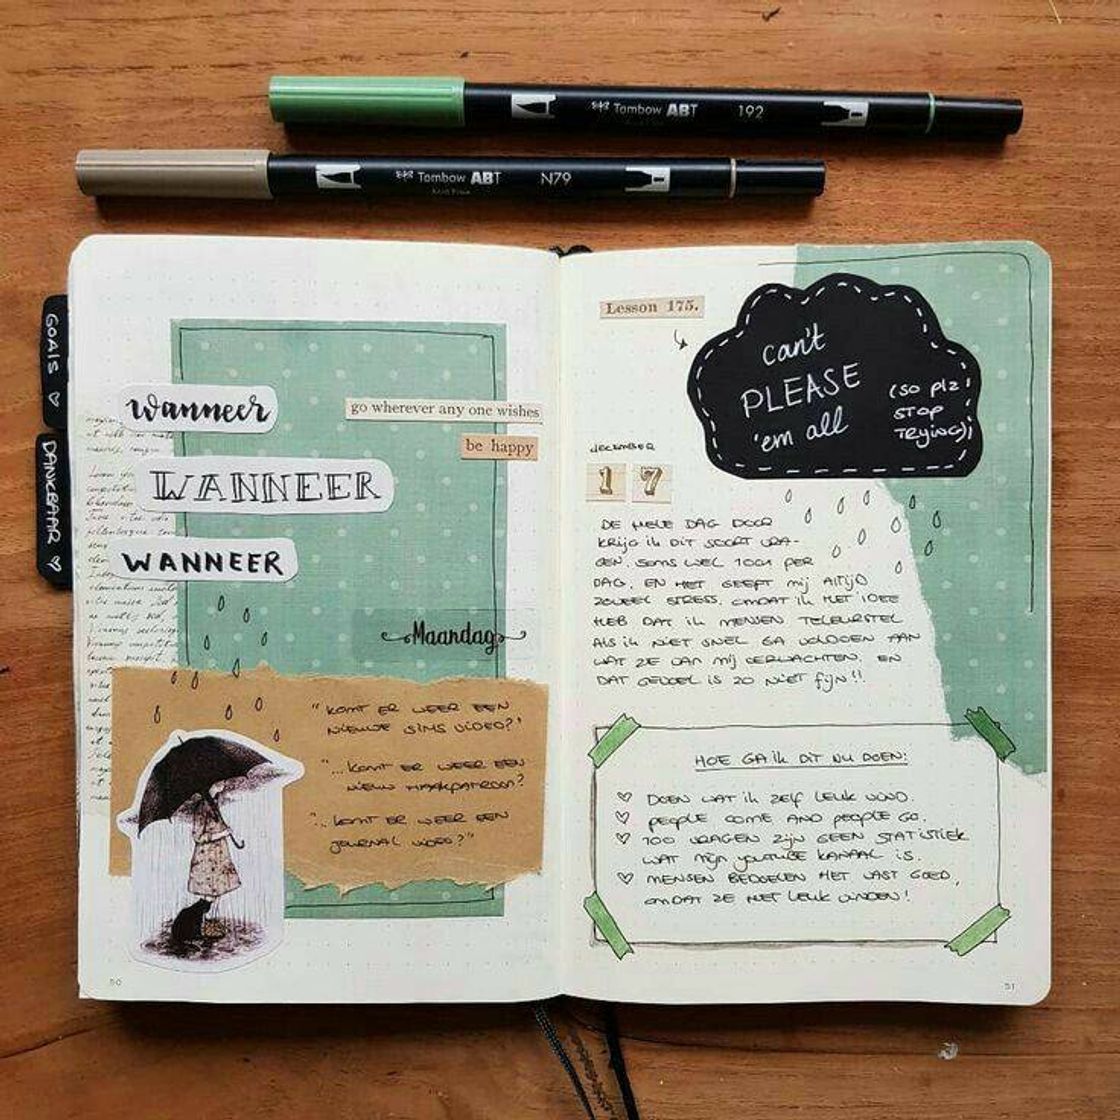 Tombow ABT 192
Tombow ABT N79
GOALS
DANKBAAR
wanneer
WANNEER
WANNEER
go wherever any one wishes
be happy
Maandag
"KOMT ER WEER EEN
NIEUWE SIMS VIDEO?"
"...KOMT ER WEER EEN
NIEUW HAAKPATROON?
"...KOMT ER WEER EEN
JOURNAL VIDEO?"
50
Lesson 175.
can't
PLEASE
'em all
(so plz
STOP
TRYING)
DECEMBER
17
DE HELE DAG DOOR
KRIJG IK DIT SOORT VRA-
GEN. SOMS WEL 1001 PER
DAG. EN HET GEEFT MIJ ALTIJD
ZOVEEL STRESS. OMDAT IK HET IDEE
HEB DAT IK MENSEN TELEURSTEL
ALS IK NIET SNEL GA VOLDOEN AAN
WAT ZE VAN MIJ VERWACHTEN. EN
DAT GEVOEL IS ZO NIET FIJN!!
HOE GA IK DIT NU DOEN:
DOEN WAT IK ZELF LEUK VIND.
PEOPLE COME AND PEOPLE GO.
100 VRAGEN ZIJN GEEN STATISTIEK
WAT MIJN YOUTUBE KANAAL IS.
MENSEN BEDOELEN HET VAST GOED,
OMDAT ZE HET LEUK VINDEN!
51